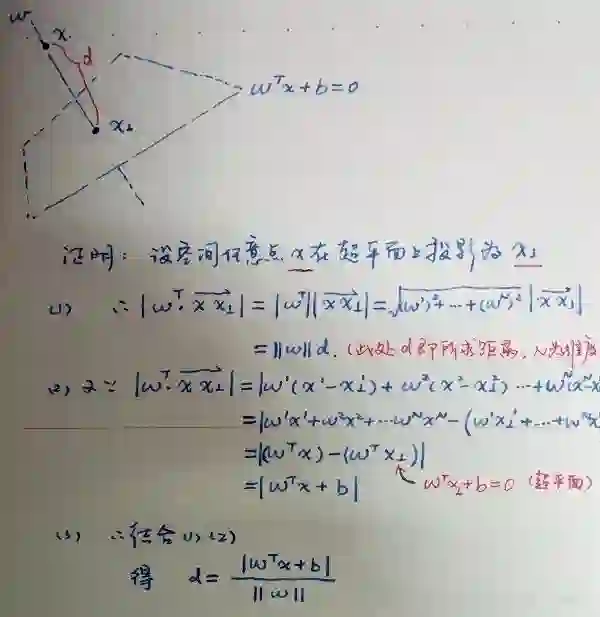 w
x
d
x⊥
wᵀx+b=0
证明：设空间任意点 x 在超平面上投影为 x⊥
(1) ∴ |wᵀ·xx⊥| = |wᵀ||xx⊥| = √((w¹)²+…+(wᴺ)²) |xx⊥|
= ||w||d. (此处 d 即所求距离, N为维度
(2) 又∵ |wᵀ·xx⊥| = |w¹(x¹-x⊥¹) + w²(x²-x⊥²) …+wᴺ(xᴺ-x
= |w¹x¹+w²x²+…wᴺxᴺ-(w¹x⊥¹+…+wᴺx
= |(wᵀx)-(wᵀx⊥)|
= |wᵀx+b| wᵀx⊥+b=0 (超平面)
(3) ∴结合(1)(2)
得 d= |wᵀx+b| / ||w||